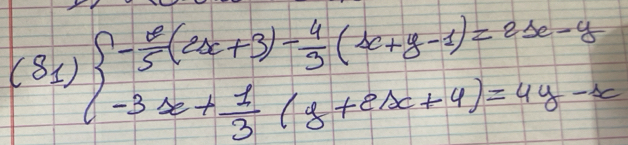 (S1) { -2/5 (2x+3) - 4/3 (x+y-1) = 2x-y
-3x + 1/3 (y+2x+4) = 4y-x